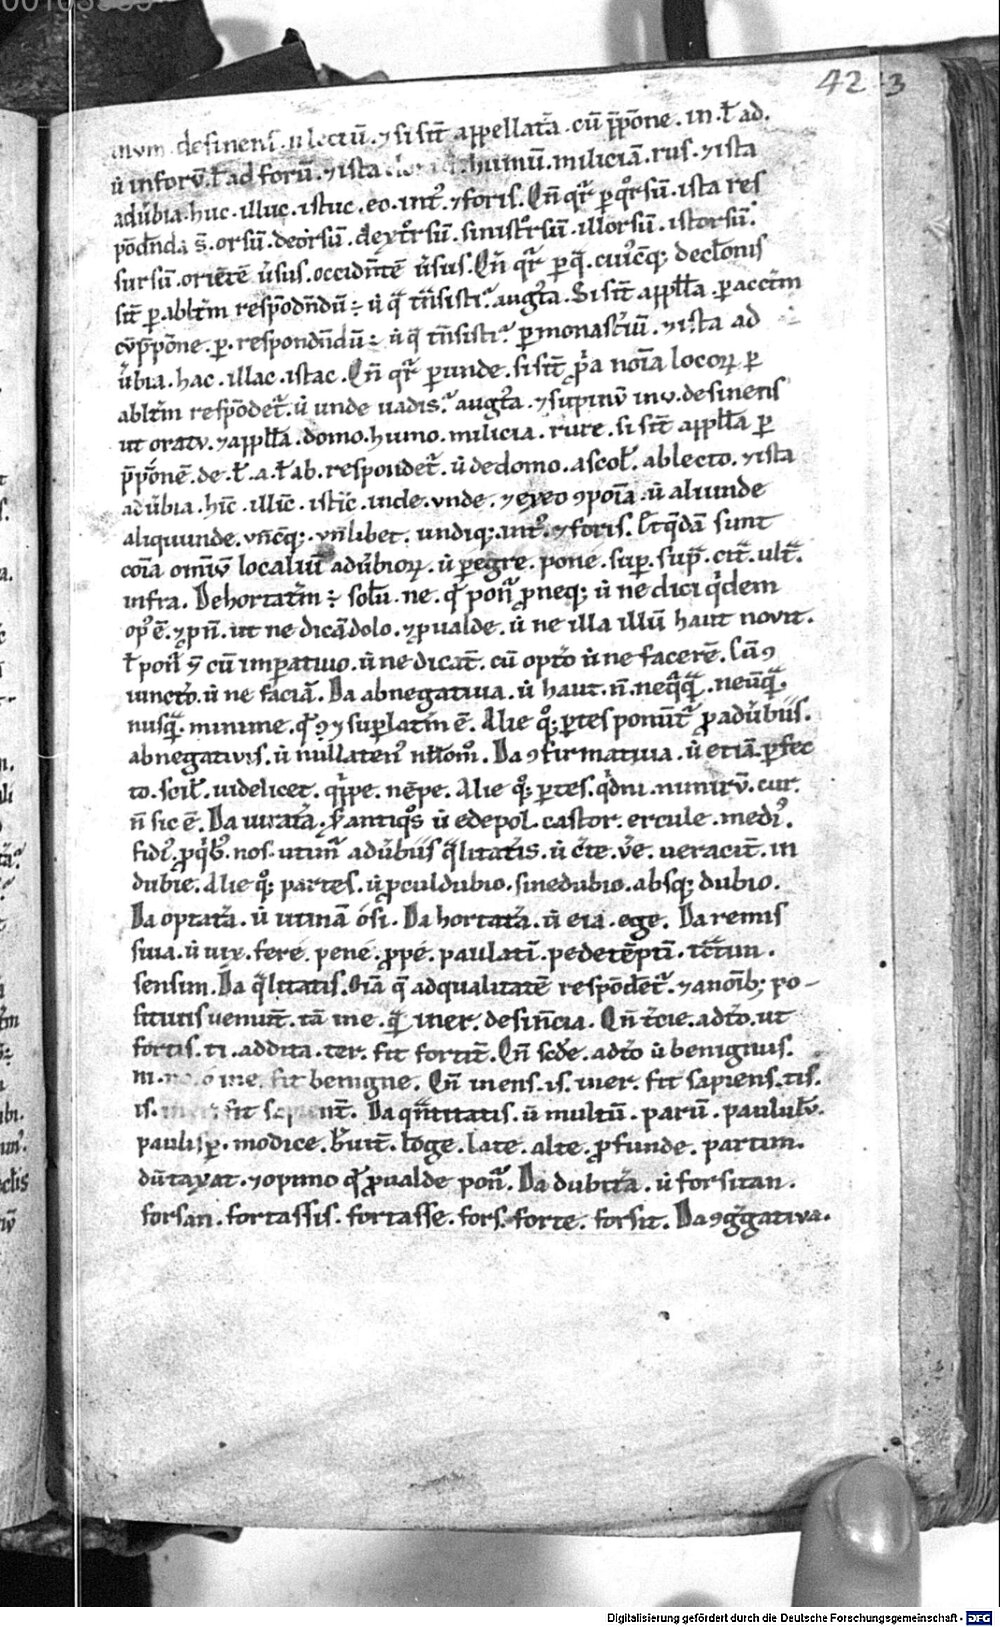 42 43
inum . desinens . ut lectū . ⁊ si sīt appellatā . cū p̄pōne . in . ł ad.
ů inforū . ł ad forū . ⁊ ista humū . miliciā . rus . ⁊ ista
adůbia . huc . illuc . istuc . eo . int᷒ . ⁊ foris . Qn̄ qr̄ꝑ qͦrsū . ista res
pōdn̄da s̄ . orsū . deorsū . dextrͦsū . sinistrͦsū . illorsū . istorsū.
sursū . oriētē ůsus . occidn̄tē ůsus . Qn̄ qr̄ ꝑ q̄ . cuiꝰcq̄; declōnis
sīt ꝑ abltm̄ respōdn̄dū ÷ ů q̄ tn̄sisti . augᷓta . Si sīt appłła . ꝑ acctm̄
cū p̄pōne . ꝑ . respondn̄dū ÷ ů q̄ tn̄sisti . ꝑ monastͥiū . ⁊ ista ad
ůbia . hac . illac . istac . Qn̄ qr̄ ꝑ unde . si sīt ꝓpͥa noīa locoꝝ ꝑ
abltm̄ respōdet᷑ . ů unde uadis . augᷓta . ⁊ supinū in u . desinens
ut oratu . ⁊ appłła . domo . humo . milicia . rure . si sīt appłła ꝑ
p̄pōnē . de . ł . a . ł ab . respondet᷑ . ů de domo . a scoł . ab lecto . ⁊ ista
adůbia . hīc . illīc . istīc . inde . vnde . ⁊ ex eo ꝯpoīa . ů aliunde
aliquunde . vn̄cq̄; . vn̄libet . undiq; . int᷒ . ⁊ foris . Et q̄dā sunt
coīa omīū localiū adůbioꝝ . ů ꝑegre . pone . suꝑ . sup̄ . citᷓ . ultᷓ.
infra . Dehortatm̄ ÷ solū . ne . qͥ poniᷓ ꝓ neq; ů ne dici qͥdem
op᷒ ē . ⁊ ꝓ n̄ . ut ne dicā dolo . ⁊ ꝓ ualde . ů ne illa illū haut novit.
ł poniᷓ ÷ cū imꝑatiuo . ů ne dicat . cū optͦ ů ne facerē . Cū ꝯ
iunctͦ . ů ne faciā . Da abnegatiua . ů haut . n̄ . neqͣqͣ . neūqͣ.
nusqͣ . minime . qͥ ꝯ ⁊ suꝑlatm̄ ē . Alie qͦ; ꝑtes ponūt᷑ ꝓ adůbiis.
abnegativis . ů nullaten᷒ nłłom᷒ . Da ꝯfirmatiua . ů etiā . ꝑfec
to . sciľ . uidelicet . qͥppe . nēpe . Alie qͦ; ꝑtes . qͥdni . nimirū . cur.
n̄ sic ē . Da iuratᷓa . ꝑ antiqͦs ů edepol . castor . ercule . medi᷒.
fidi᷒ . ꝓ qͥb᷒ . nos . utimᷓ adůbiis qͣlitatis . ů cͭe . v̄e . ueracit̄ . in
dubie . Alie qͦ; partes . ů ꝓculdubio . sinedubio . absq; dubio.
Da optatᷓa . ů utinā ósi . Da hortatᷓa . ů eia . ege . Da remis
siua . ů uix . fere . pene . ꝓpe . paulatī . pedetēpti . tctim.
sensim . Da qͣlitatis . Oīa q̄ ad qualitatē respōdēt᷑ . ⁊ a noīb; po-
sitiuis ueniūt . tā in e . qͣ in er . desinēcia . Qn̄ tͬcie . adtͦo . ut
fortis . ti . addita . ter . fit fortit̄ . Qn̄ scd̄e . adtͦo ů benignus.
ni . o in e . fit benigne . Qn̄ in ens . is . in er . fit sapiens . tis.
is . fit sapient̄ . Da qn̄titatis . ů multū . parū . paululū.
paulisꝑ . modice . breuit̄ . lōge . late . alte . ꝓfunde . partim.
dūtaxat . ⁊ opimo qͥ ꝓ ualde poniᷓ . Da dubitᷓa . ů forsitan.
forsan . fortassis . fortasse . fors . forte . forsit . Da ꝯgͬgativa.
Digitalisierung gefördert durch die Deutsche Forschungsgemeinschaft - DFG